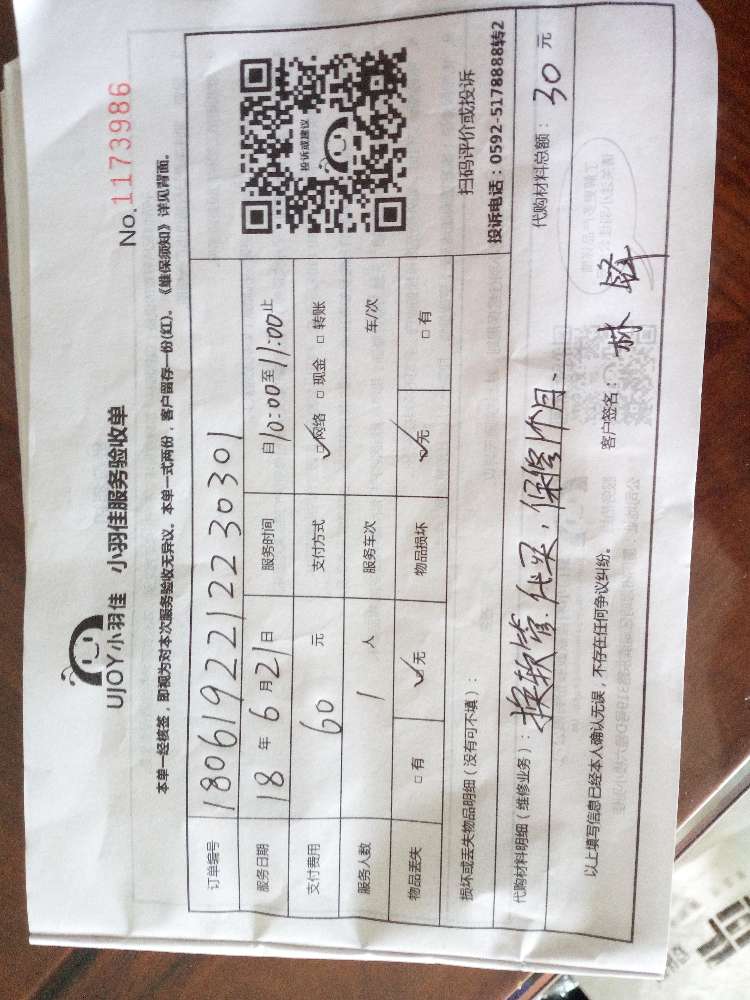 UJOY小羽佳 小羽佳服务验收单
No.11173986
本单一经核签，即视为对本次服务验收无异议。本单一式两份，客户留存一份(红)。《维保须知》详见背面。
订单编号 180619221223 0301
服务日期 18 年 6 月 21 日 服务时间 自 10:00 至 11:00 止
支付费用 60 元 支付方式 ☑网络 □现金 □转账
服务人数 1 人 服务车次 车/次
物品丢失 □有 ☑无 物品损坏 ☑无 □有
投诉或建议
扫码评价或投诉
投诉电话：0592-5178888转2
损坏或丢失物品明细（没有可不填）：
代购材料明细（维修业务）：换软管.代买，保修1个月.
代购材料总额：30 元
以上填写信息已经本人确认无误，不存在任何争议纠纷。
客户签名：林